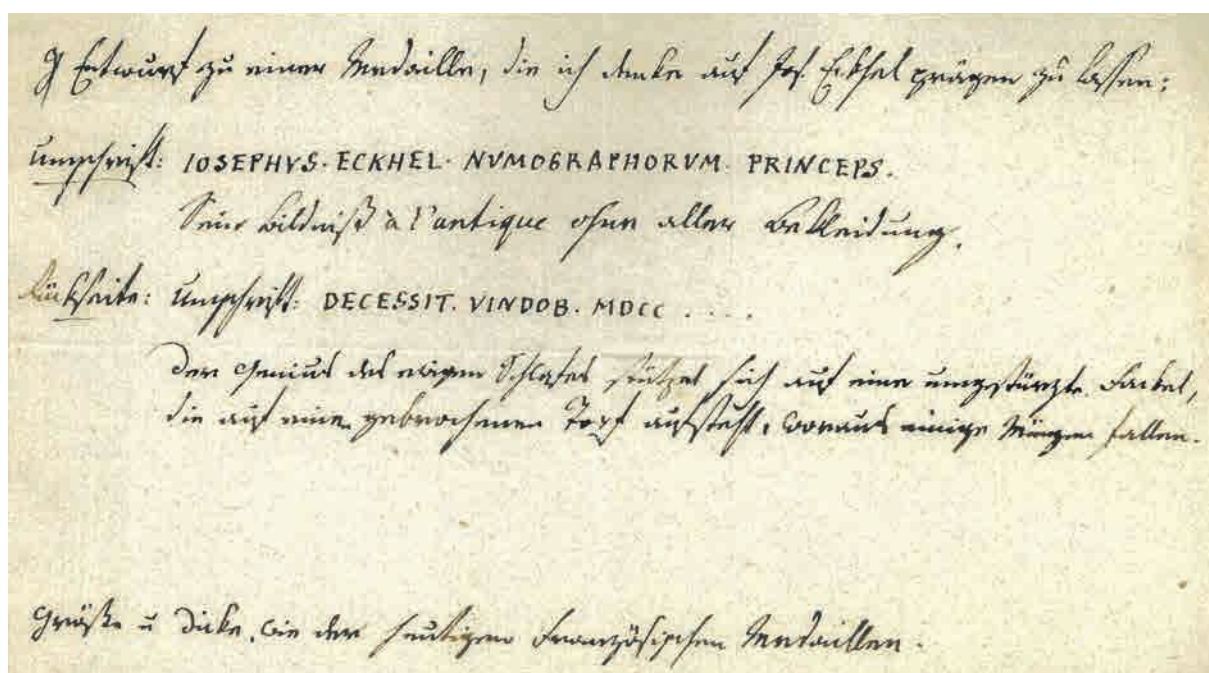 Entwurf zu einer Medaille, die ich denke auf Jos. Eckhel prägen zu lassen:
Umschrift: IOSEPHVS. ECKHEL. NVMOGRAPHORVM. PRINCEPS.
Sein Bildniß à l'antique ohne aller Bekleidung.
Rückseite: Umschrift: DECESSIT. VINDOB. MDCC . . . .
Der Genius des ewigen Schlafes stützet sich auf eine umgestürzte Fackel,
die auf einem gebrochenen Topf aufsteht, woraus einige Münzen fallen.
Größe u Dicke, wie der heutigen Französischen Medaillen.